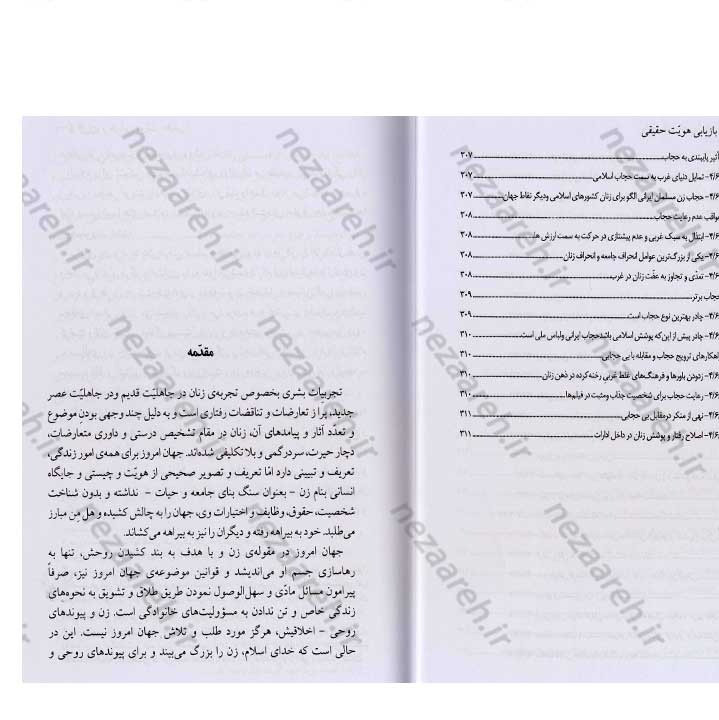 بازیابی هویّت حقیقی
تأثیر پایبندی به حجاب ۳۰۷
۴/۶- تمایل دنیای غرب به سمت حجاب اسلامی ۳۰۷
۴/۶- حجاب زن مسلمان ایرانی الگو برای زنان کشورهای اسلامی ودیگر نقاط جهان ۳۰۷
عواقب عدم رعایت حجاب ۳۰۸
۴/۶- ابتذال به سبک غربی و عدم پیشتازی در حرکت به سمت ارزش ها ۳۰۸
۴/۶- یکی از بزرگ‌ترین عوامل انحراف جامعه و انحراف زنان ۳۰۸
۴/۶- تعدّی و تجاوز به عفّت زنان در غرب ۳۰۸
حجاب برتر ۳۰۹
۴/۶- چادر بهترین نوع حجاب است ۳۰۹
۴/۶- چادر پیش از این‌که پوشش اسلامی باشدحجاب ایرانی ولباس ملی است ۳۱۰
راهکارهای ترویج حجاب و مقابله با بی حجابی ۳۱۰
۴/۶- زدودن باورها و فرهنگ‌های غلط غربی رخنه‌کرده در ذهن زنان ۳۱۰
۴/۶- رعایت حجاب برای شخصیت جذاب ومثبت در فیلم‌ها ۳۱۰
۴/۶- نهی از منکر درمقابل بی حجابی ۳۱۱
۴/۶- اصلاح رفتار و پوشش زنان در داخل ادارات ۳۱۱
مقدّمه
تجربیات بشری بخصوص تجربه‌ی زنان در جاهلیّت قدیم ودر جاهلیّت عصر
جدید، پر از تعارضات و تناقضات رفتاری است و به دلیل چند وجهی بودنِ موضوع
و تعدّد آثار و پیامدهای آن، زنان در مقام تشخیص درستی و داوری متعارضات،
دچار حیرت، سردرگمی و بلا تکلیفی شده‌اند. جهان امروز برای همه‌ی امور زندگی،
تعریف و تبیینی دارد امّا تعریف و تصویر صحیحی از هویّت و چیستی و جایگاه
انسانی بنام زن - بعنوان سنگ بنای جامعه و حیات - نداشته و بدون شناخت
شخصیت، حقوق، وظایف و اختیارات وی، جهان را به چالش کشیده و هل مِن مبارز
می‌طلبد. خود به بیراهه رفته و دیگران را نیز به بیراهه می‌کشاند.
جهان امروز در مقوله‌ی زن و با هدف به بند کشیدن روحش، تنها به
رهاسازی جسم او می‌اندیشد و قوانین موضوعه‌ی جهان امروز نیز، صرفاً
پیرامون مسائل مادّی و سهل‌الوصول نمودن طریق طلاق و تشویق به نحوه‌های
زندگی خاص و تن ندادن به مسؤولیت‌های خانوادگی است. زن و پیوندهای
روحی - اخلاقیش، هرگز مورد طلب و تلاش جهان امروز نیست. این در
حالی است که خدای اسلام، زن را بزرگ می‌بیند و برای پیوندهای روحی و
nezaareh.ir